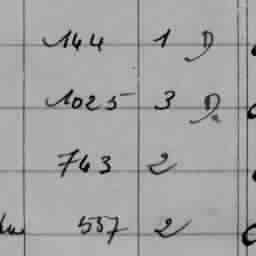 144 1 D
1025 3 D.
743 2
557 2